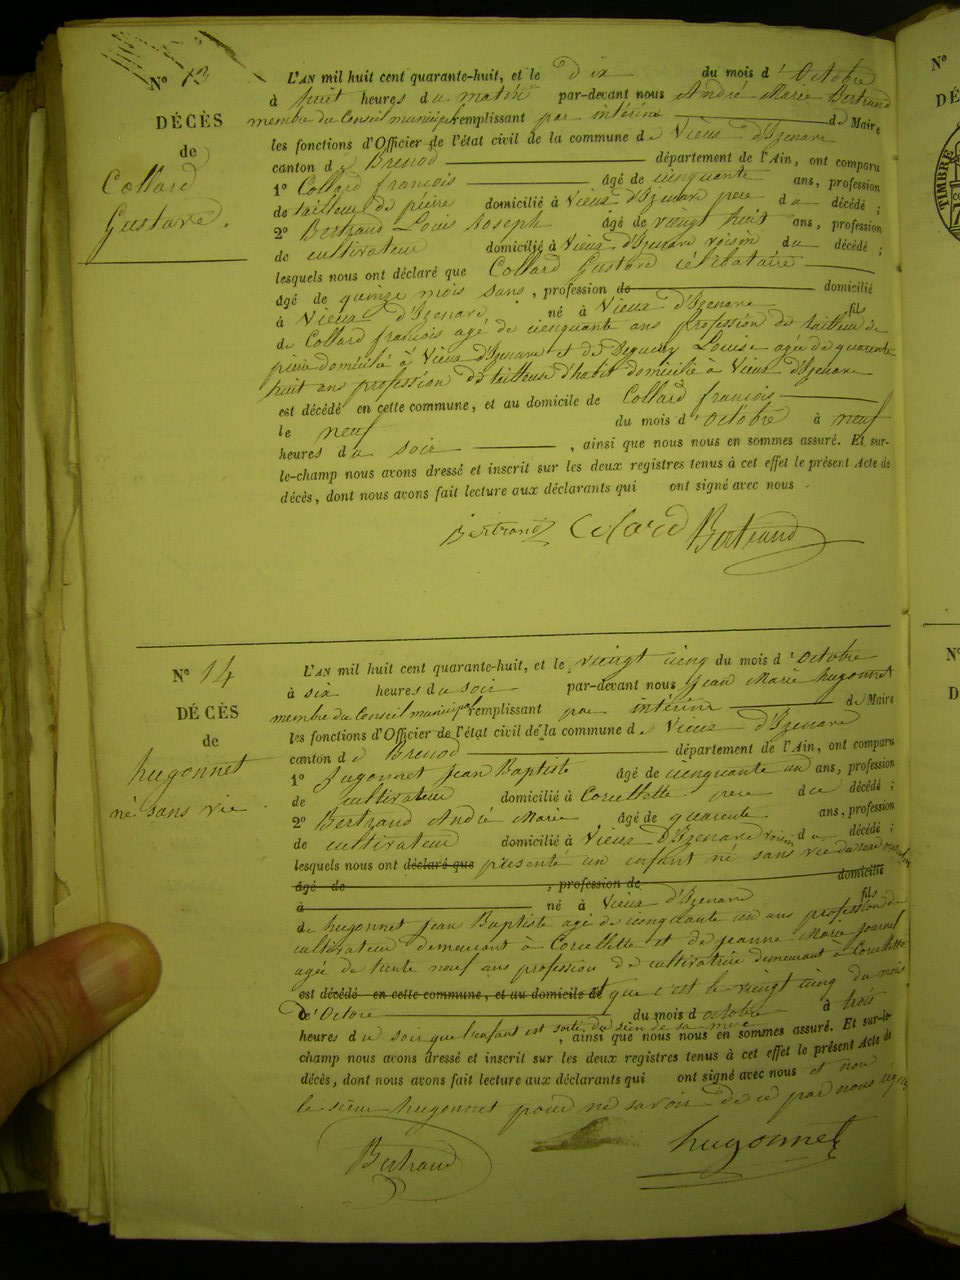 N° 13
DÉCÈS
de
Collard
Gustave.
L'AN mil huit cent quarante-huit, et le dix du mois d'Octobre
à huit heures du matin par-devant nous André Marie Bertrand
membre du Conseil municipal remplissant par intérine de Maire
les fonctions d'Officier de l'état civil de la commune de Vieux d'Izenave
canton de Brenod département de l'Ain, ont comparu
1° Collard francois âgé de cinquante ans, profession
de tailleur de pierre domicilié à Vieux d'Izenave pere du décédé ;
2° Bertrand Louis Joseph âgé de vingt huit ans, profession
de cultivateur domicilié à Vieux d'Izenave voisin du décédé ;
lesquels nous ont déclaré que Collard Gustave célibataire
âgé de quinze mois sans, profession de domicilié
à Vieux d'Izenave né à Vieux d'Izenave fils
de Collard francois agé de cinquante ans profession de tailleur de
pierre domicilié à Vieux d'Izenave et de Louise agée de quarante
huit ans profession de tailleuse d'habit domicilié à Vieux d'Izenave
est décédé en cette commune, et au domicile de Collard francois
le neuf du mois d'Octobre à neuf
heures du soir, ainsi que nous nous en sommes assuré. Et sur-
le-champ nous avons dressé et inscrit sur les deux registres tenus à cet effet le présent Acte de
décès, dont nous avons fait lecture aux déclarants qui ont signé avec nous.
Bertrand Colard Bertrand
N° 14
DÉCÈS
de
hugonnet
né sans vie
L'AN mil huit cent quarante-huit, et le vingt cinq du mois d'Octobre
à six heures du soir par-devant nous Jean Marie hugonnet
membre du Conseil municipal remplissant par intérine de Maire
les fonctions d'Officier de l'état civil de la commune de Vieux d'Izenave
canton de Brenod département de l'Ain, ont comparu
1° hugonnet Jean Baptiste âgé de cinquante un ans, profession
de cultivateur domicilié à Corcellette pere du décédé ;
2° Bertrand André Marie âgé de quarente ans, profession
de cultivateur domicilié à Vieux d'Izenave voisin du décédé ;
lesquels nous ont déclaré que présenté un enfant né sans vie du sexe masculin
âgé de , profession de domicilié
à né à Vieux d'Izenave fils
de hugonnet Jean Baptiste agé de cinquante un ans profession de
cultivateur demeurant à Corcellette et de jeanne Marie
agée de trente neuf ans profession de cultivatrice demeurant à Corcellette
est décédé en cette commune, et au domicile de et que c'est le vingt cinq du mois
d'Octore du mois d octobre à trois
heures du soir que l'enfant est sorti du sein de sa mere, ainsi que nous nous en sommes assuré. Et sur-le-
champ nous avons dressé et inscrit sur les deux registres tenus à cet effet le présent Acte de
décès, dont nous avons fait lecture aux déclarants qui ont signé avec nous et non
le sieur hugonnet pour ne savoir de ce par nous
Bertrand hugonnet
N°
DÉ
TIMBRE
N°
D